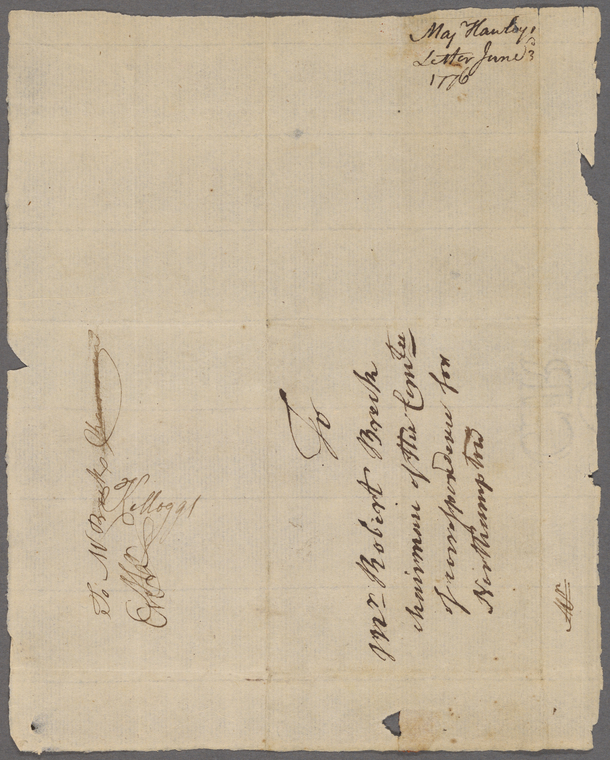 Maj Hawleys
Letter June 3d
1776
To
Mr. Robert Breck
chairman of the Comtee
of correspondence for
Northampton
To Mr Breck
Kelloggs
Mr